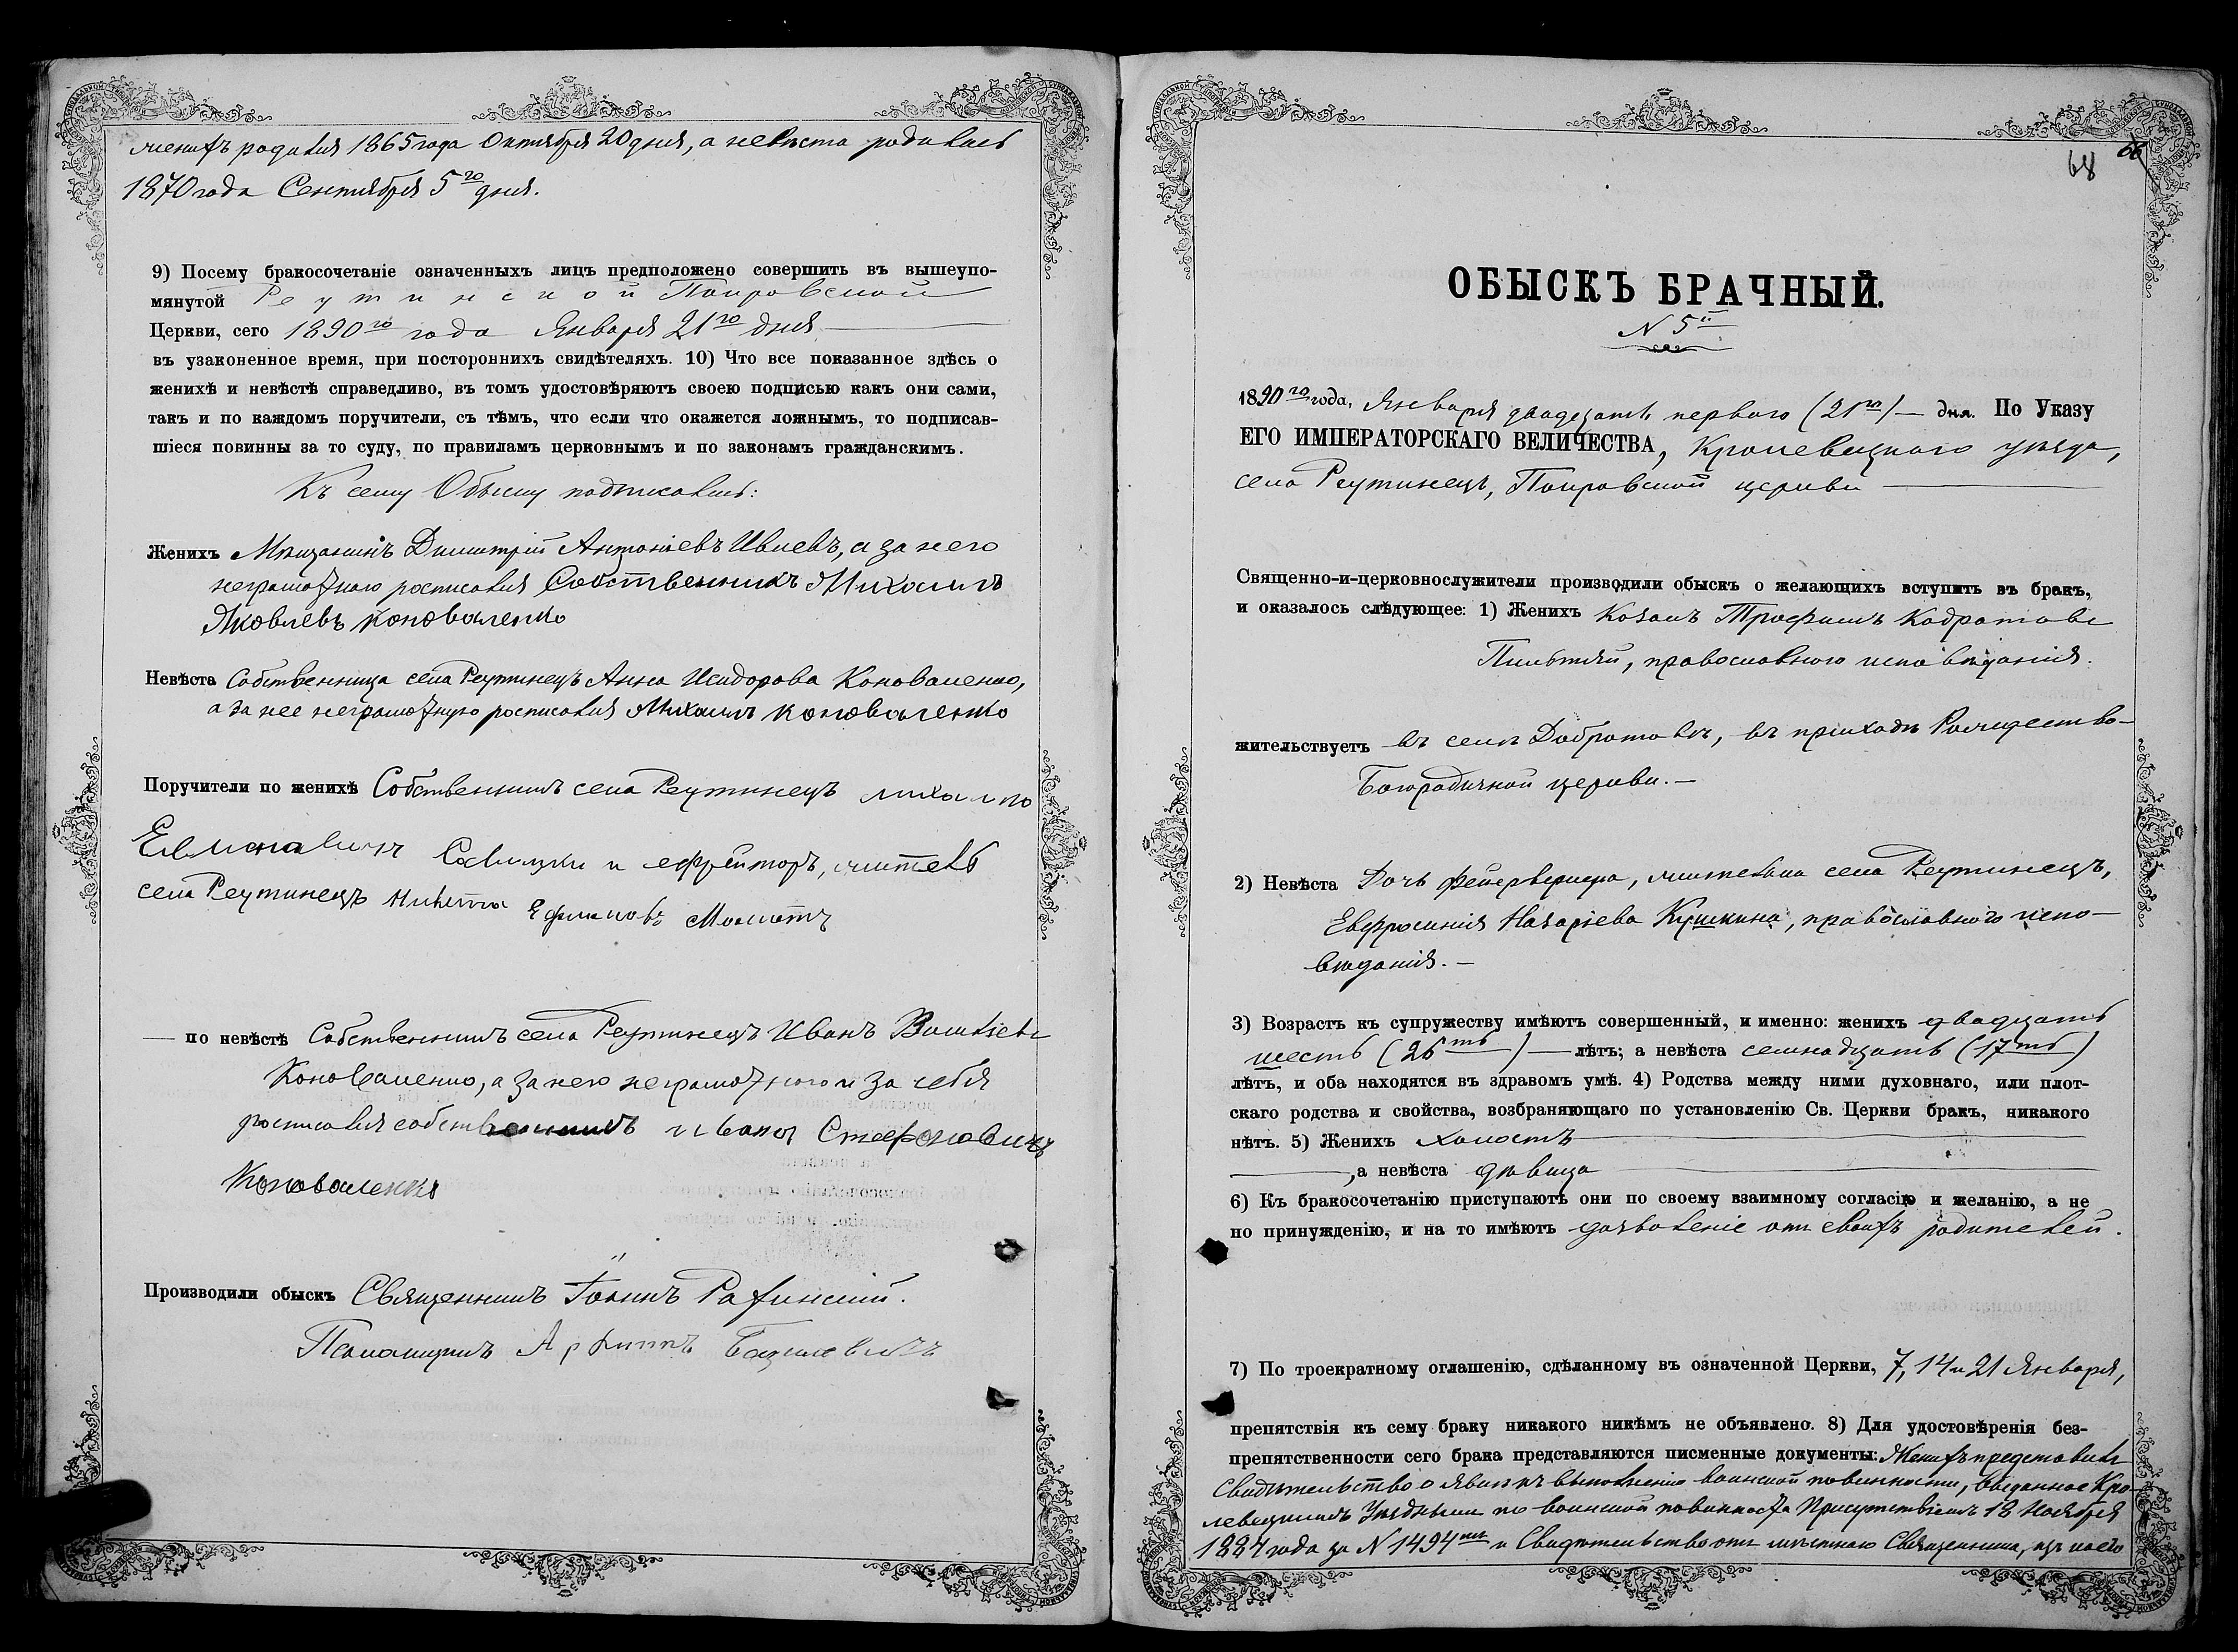 женихъ родился 1865 года Октября 20 дня, а невѣста родилась
1870 года Сентября 5го дня.
9) Посему бракосочетаніе означенныхъ лицъ предположено совершить въ вышеупо-
мянутой Реутинской Покровской
Церкви, сего 1890го года Января 21го дня
въ узаконенное время, при постороннихъ свидѣтеляхъ. 10) Что все показанное здѣсь о
женихѣ и невѣстѣ справедливо, въ томъ удостовѣряютъ своею подписью какъ они сами,
такъ и по каждомъ поручители, съ тѣмъ, что если что окажется ложнымъ, то подписав-
шіеся повинны за то суду, по правиламъ церковнымъ и по законамъ гражданскимъ.
Къ сему Обыску подписались:
Женихъ Мѣщанинъ Димитрій Антоніевъ Ивневъ, а за него
неграмотнаго росписался Собственникъ Михаилъ
Яковлевъ Коноваленко
Невѣста Собственница села Реутинецъ Анна Исидорова Коноваленко,
а за нее неграмотную росписался Михаилъ Коноваленко
Поручители по женихѣ Собственникъ села Реутинецъ
Савицки и ефрейторъ, житель
села Реутинецъ Никита Ефимовъ
— по невѣстѣ Собственникъ села Реутинецъ Иванъ
Коноваленко, а за него неграмотнаго и за себя
росписался собственникъ Иванъ Стефановичъ
Коноваленко
Производили обыскъ Священникъ Іоаннъ
Псаломщикъ
68
66
ОБЫСКЪ БРАЧНЫЙ.
N 5й
1890го года, Января двадцать перваго (21го) — дня. По Указу
ЕГО ИМПЕРАТОРСКАГО ВЕЛИЧЕСТВА, Кролевецкаго уѣзда,
села Реутинецъ, Покровской церкви
Священно-и-церковнослужители производили обыскъ о желающихъ вступить въ бракъ,
и оказалось слѣдующее: 1) Женихъ Козакъ Трофимъ Кодратовъ
православнаго исповѣданія.
жительствуетъ въ селѣ Добротовѣ, въ приходѣ Рождество-
Богородичной церкви. —
2) Невѣста Дочь фейерверкера, жителька села Реутинецъ,
Евфросинія Назаріева Кушкина, православнаго испо-
вѣданія. —
3) Возрастъ къ супружеству имѣютъ совершенный, и именно: женихъ двадцать
шесть (26ть) — лѣтъ; а невѣста семнадцать (17ть)
лѣтъ, и оба находятся въ здравомъ умѣ. 4) Родства между ними духовнаго, или плот-
скаго родства и свойства, возбраняющаго по установленію Св. Церкви бракъ, никакого
нѣтъ. 5) Женихъ холостъ
, а невѣста дѣвица
6) Къ бракосочетанію приступаютъ они по своему взаимному согласію и желанію, а не
по принужденію, и на то имѣютъ дозволеніе отъ своихъ родителей.
7) По троекратному оглашенію, сдѣланному въ означенной Церкви, 7, 14 и 21 Января,
препятствія къ сему браку никакого никѣмъ не объявлено. 8) Для удостовѣренія без-
препятственности сего брака представляются писменные документы: Женихъ представилъ
Свидѣтельство о явкѣ къ выполненію воинской повинности, выданное Кро-
левецкимъ Уѣзднымъ по воинской повинности Присутствіемъ 18 Ноября
1884 года за N 1494мъ и Свидѣтельство отъ мѣстнаго Священника, изъ коего